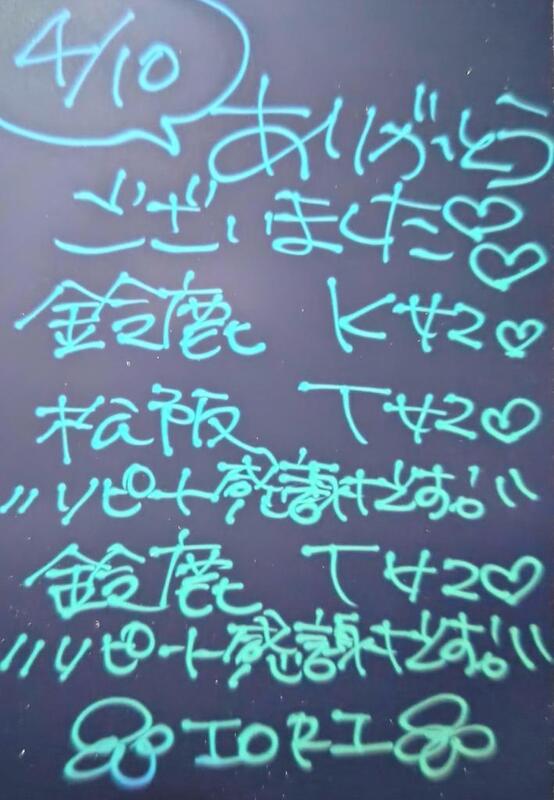 4/10
ありがとう
ございました♡♡
鈴鹿 K￥2♡
松阪 T￥2♡
〃リピート感謝です。〃
鈴鹿 T￥2♡
〃リピート感謝です。〃
IORI